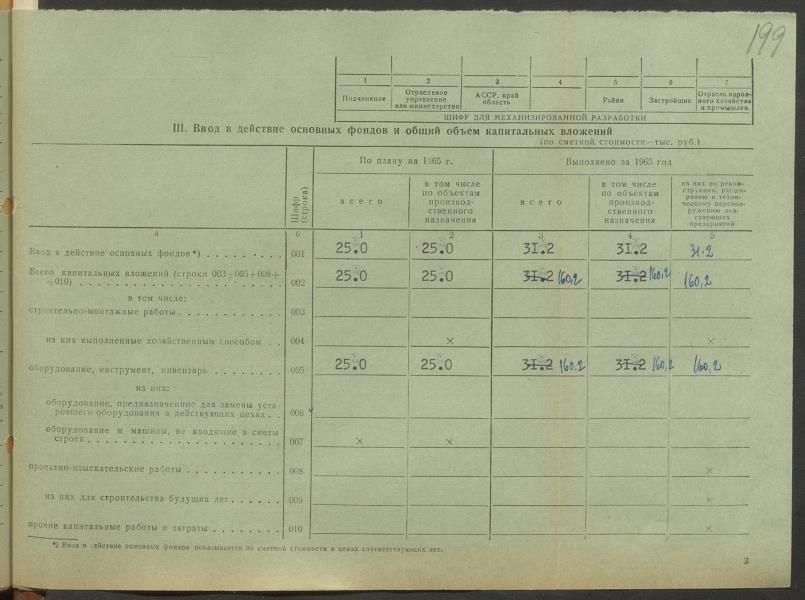 199
1 2 3 4 5 6 7
Подчинение Отраслевое управление или министерство АССР, край область Район Застройщик Отрасль народ-ного хозяйства и промышлен.
ШИФР ДЛЯ МЕХАНИЗИРОВАННОЙ РАЗРАБОТКИ
III. Ввод в действие основных фондов и общий объем капитальных вложений
(по сметной стоимости—тыс. руб.)
Шифр (строка)
По плану на 1965 г. Выполнено за 1965 год
всего
в том числе по объектам производ-ственного назначения
всего
в том числе по объектам производ-ственного назначения
из них по рекон-струкции, расши-рению и техни-ческому перевоо-ружению дей-ствующих предприятий
а б 1 2 3 4 5
Ввод в действие основных фондов*) 001 25.0 25.0 31.2 31.2 31.2
Всего капитальных вложений (строки 003+005+008+
+010) 002 25.0 25.0 31.2 160,2 31.2 160,2 160,2
в том числе:
строительно-монтажные работы 003
из них выполненные хозяйственным способом 004 × ×
оборудование, инструмент, инвентарь 005 25.0 25.0 31.2 160,2 31.2 160,2 160,2
из них:
оборудование, предназначенное для замены уста-
ревшего оборудования в действующих цехах 006
оборудование и машины, не входящие в сметы
строек 007 × ×
проектно-изыскательские работы 008 ×
из них для строительства будущих лет 009 ×
прочие капитальные работы и затраты 010 ×
*) Ввод в действие основных фондов показывается по сметной стоимости в ценах соответствующих лет.
3